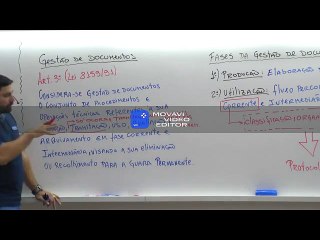 GESTÃO DE DOCUMENTOS
Art. 3º (Lei 8159/91)
CONSIDERA-SE GESTÃO DE DOCUMENTOS
O CONJUNTO DE PROCEDIMENTOS E
OPERAÇÕES TÉCNICAS REFERENTES A SUA
TRAMITAÇÃO, USO
ARQUIVAMENTO EM FASE CORRENTE E
INTERMEDIÁRIA, VISANDO A SUA ELIMINAÇÃO
OU RECOLHIMENTO PARA A GUARDA PERMANENTE.
FASES DA GESTÃO DE DOCUM
1ª) PRODUÇÃO: ELABORAÇÃO
2ª) UTILIZAÇÃO: FLUXO PERCO
CORRENTE E INTERMEDIÁR
CLASSIFICAÇÃO, ORGA
PROTOCOL
MOVAVI
VIDEO
EDITOR